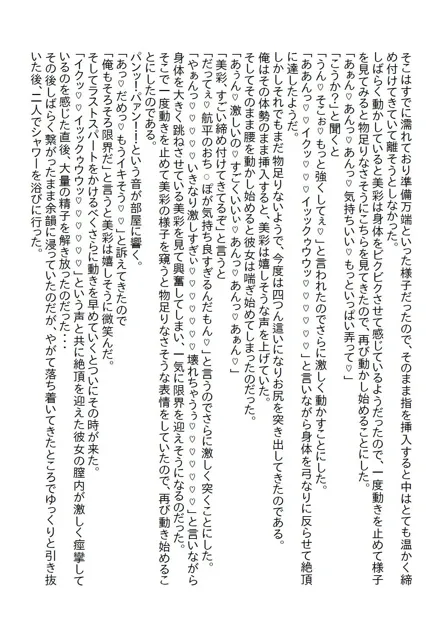 そこはすでに濡れており準備万端といった様子だったので、そのまま指を挿入すると中はとても温かく締
め付けてきていて離そうとしなかった。
しばらく動かしていると美彩は身体をビクビクさせて感じているようだったので、一度動きを止めて様子
を見てみると物足りなさそうにこちらを見てきたので、再び動かし始めることにした。
「あぁん♡あんっ♡あんっ♡気持ちいい♡もっといっぱい弄って♡」
「こうか？」と聞くと
「うん♡そこぉ♡もっと強くしてぇ♡」と言われたのでさらに激しく動かすことにした。
「ああんっ♡イクッ♡♡♡イックゥ♡♡♡♡♡♡♡」と言いながら身体を弓なりに反らせて絶頂
に達したようだ。
しかしそれでもまだ物足りないようで、今度は四つん這いになりお尻を突き出してきたのである。
俺はその体勢のまま挿入すると、美彩は嬉しそうな声を上げていた。
そしてそのまま腰を動かし始めると彼女は喘ぎ始めてしまったのだった。
「あぅん♡激しいの♡すごくいいい♡あんっ♡あんっ♡あぁん♡」
「美彩、すごい締め付けてきてるぞ」と言うと
「だってぇ♡航平のおち○ぽが気持ち良すぎるんだもん♡」と言うのでさらに激しく突くことにした。
「やぁんっ♡♡♡♡♡いきなり激しすぎぃ♡♡♡♡♡♡壊れちゃうぅ♡♡♡♡♡♡♡」と言いながら
身体を大きく跳ねさせている美彩を見て興奮してしまい、一気に限界を迎えそうになるのだった。
そこで一度動きを止めて美彩の様子を窺うと物足りなさそうな表情をしていたので、再び動き始めるこ
とにしたのである。
パンッ！パァン！！！という音が部屋に響く。
「あっ♡だめっ♡もうイキそう♡♡」と訴えてきたので
「俺もそろそろ限界だ」と言うと美彩は嬉しそうに微笑んだ。
そしてラストスパートをかけるべくさらに動きを早めていくとついにその時が来た。
「イクッ♡♡♡イックゥウウッ♡♡♡♡♡」という声と共に絶頂を迎えた彼女の膣内が激しく痙攣して
いるのを感じた直後、大量の精子を解き放ったのだった・・・
その後しばらく繋がったまま余韻に浸っていたのだが、やがて落ち着いてきたところでゆっくりと引き抜
いた後、二人でシャワーを浴びに行った。